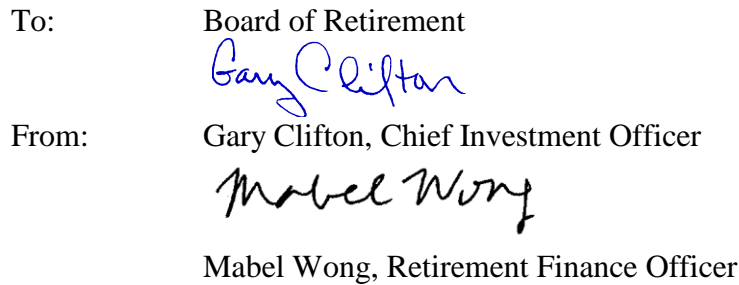 To: Board of Retirement
Gary Clifton
From: Gary Clifton, Chief Investment Officer
Mabel Wong
Mabel Wong, Retirement Finance Officer